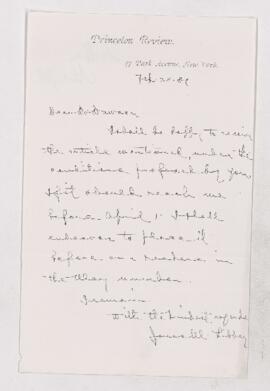 Princeton Review.
17 Park Avenue, New York.
Feb 20. 89
Dear Dr Dawson
I shall be happy to receive
the article mentioned, under the
conditions proposed by you,
should reach me
before April 1st I shall
endeavor to place it
before our readers in
the May number.
I remain
With the kindest regards
Libbey